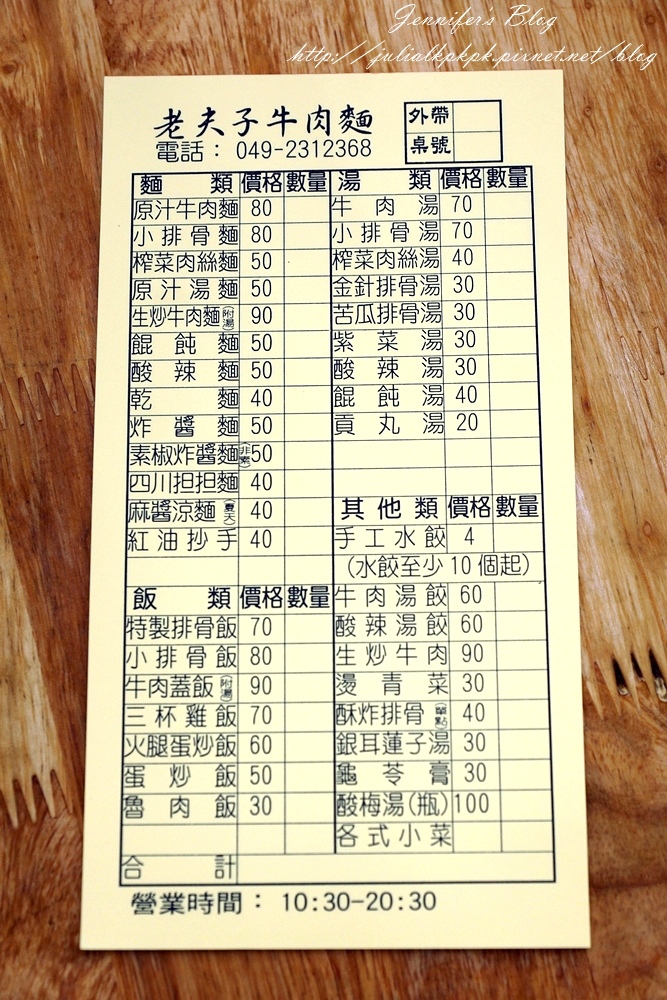 Jennifer's Blog
http://julialkpkpk.pixnet.net/blog
老夫子牛肉麵
電話：049-2312368
外帶
桌號
麵類 價格 數量
原汁牛肉麵 80
小排骨麵 80
榨菜肉絲麵 50
原汁湯麵 50
生炒牛肉麵(附湯) 90
餛飩麵 50
酸辣麵 50
乾麵 40
炸醬麵 50
素椒炸醬麵(非素) 50
四川担担麵 40
麻醬涼麵(夏天) 40
紅油抄手 40
飯類 價格 數量
特製排骨飯 70
小排骨飯 80
牛肉蓋飯(附湯) 90
三杯雞飯 70
火腿蛋炒飯 60
蛋炒飯 50
魯肉飯 30
湯類 價格 數量
牛肉湯 70
小排骨湯 70
榨菜肉絲湯 40
金針排骨湯 30
苦瓜排骨湯 30
紫菜湯 30
酸辣湯 30
餛飩湯 40
貢丸湯 20
其他類 價格 數量
手工水餃 4
(水餃至少10個起)
牛肉湯餃 60
酸辣湯餃 60
生炒牛肉 90
燙青菜 30
酥炸排骨(單點) 40
銀耳蓮子湯 30
龜苓膏 30
酸梅湯(瓶) 100
各式小菜
合計
營業時間：10:30-20:30